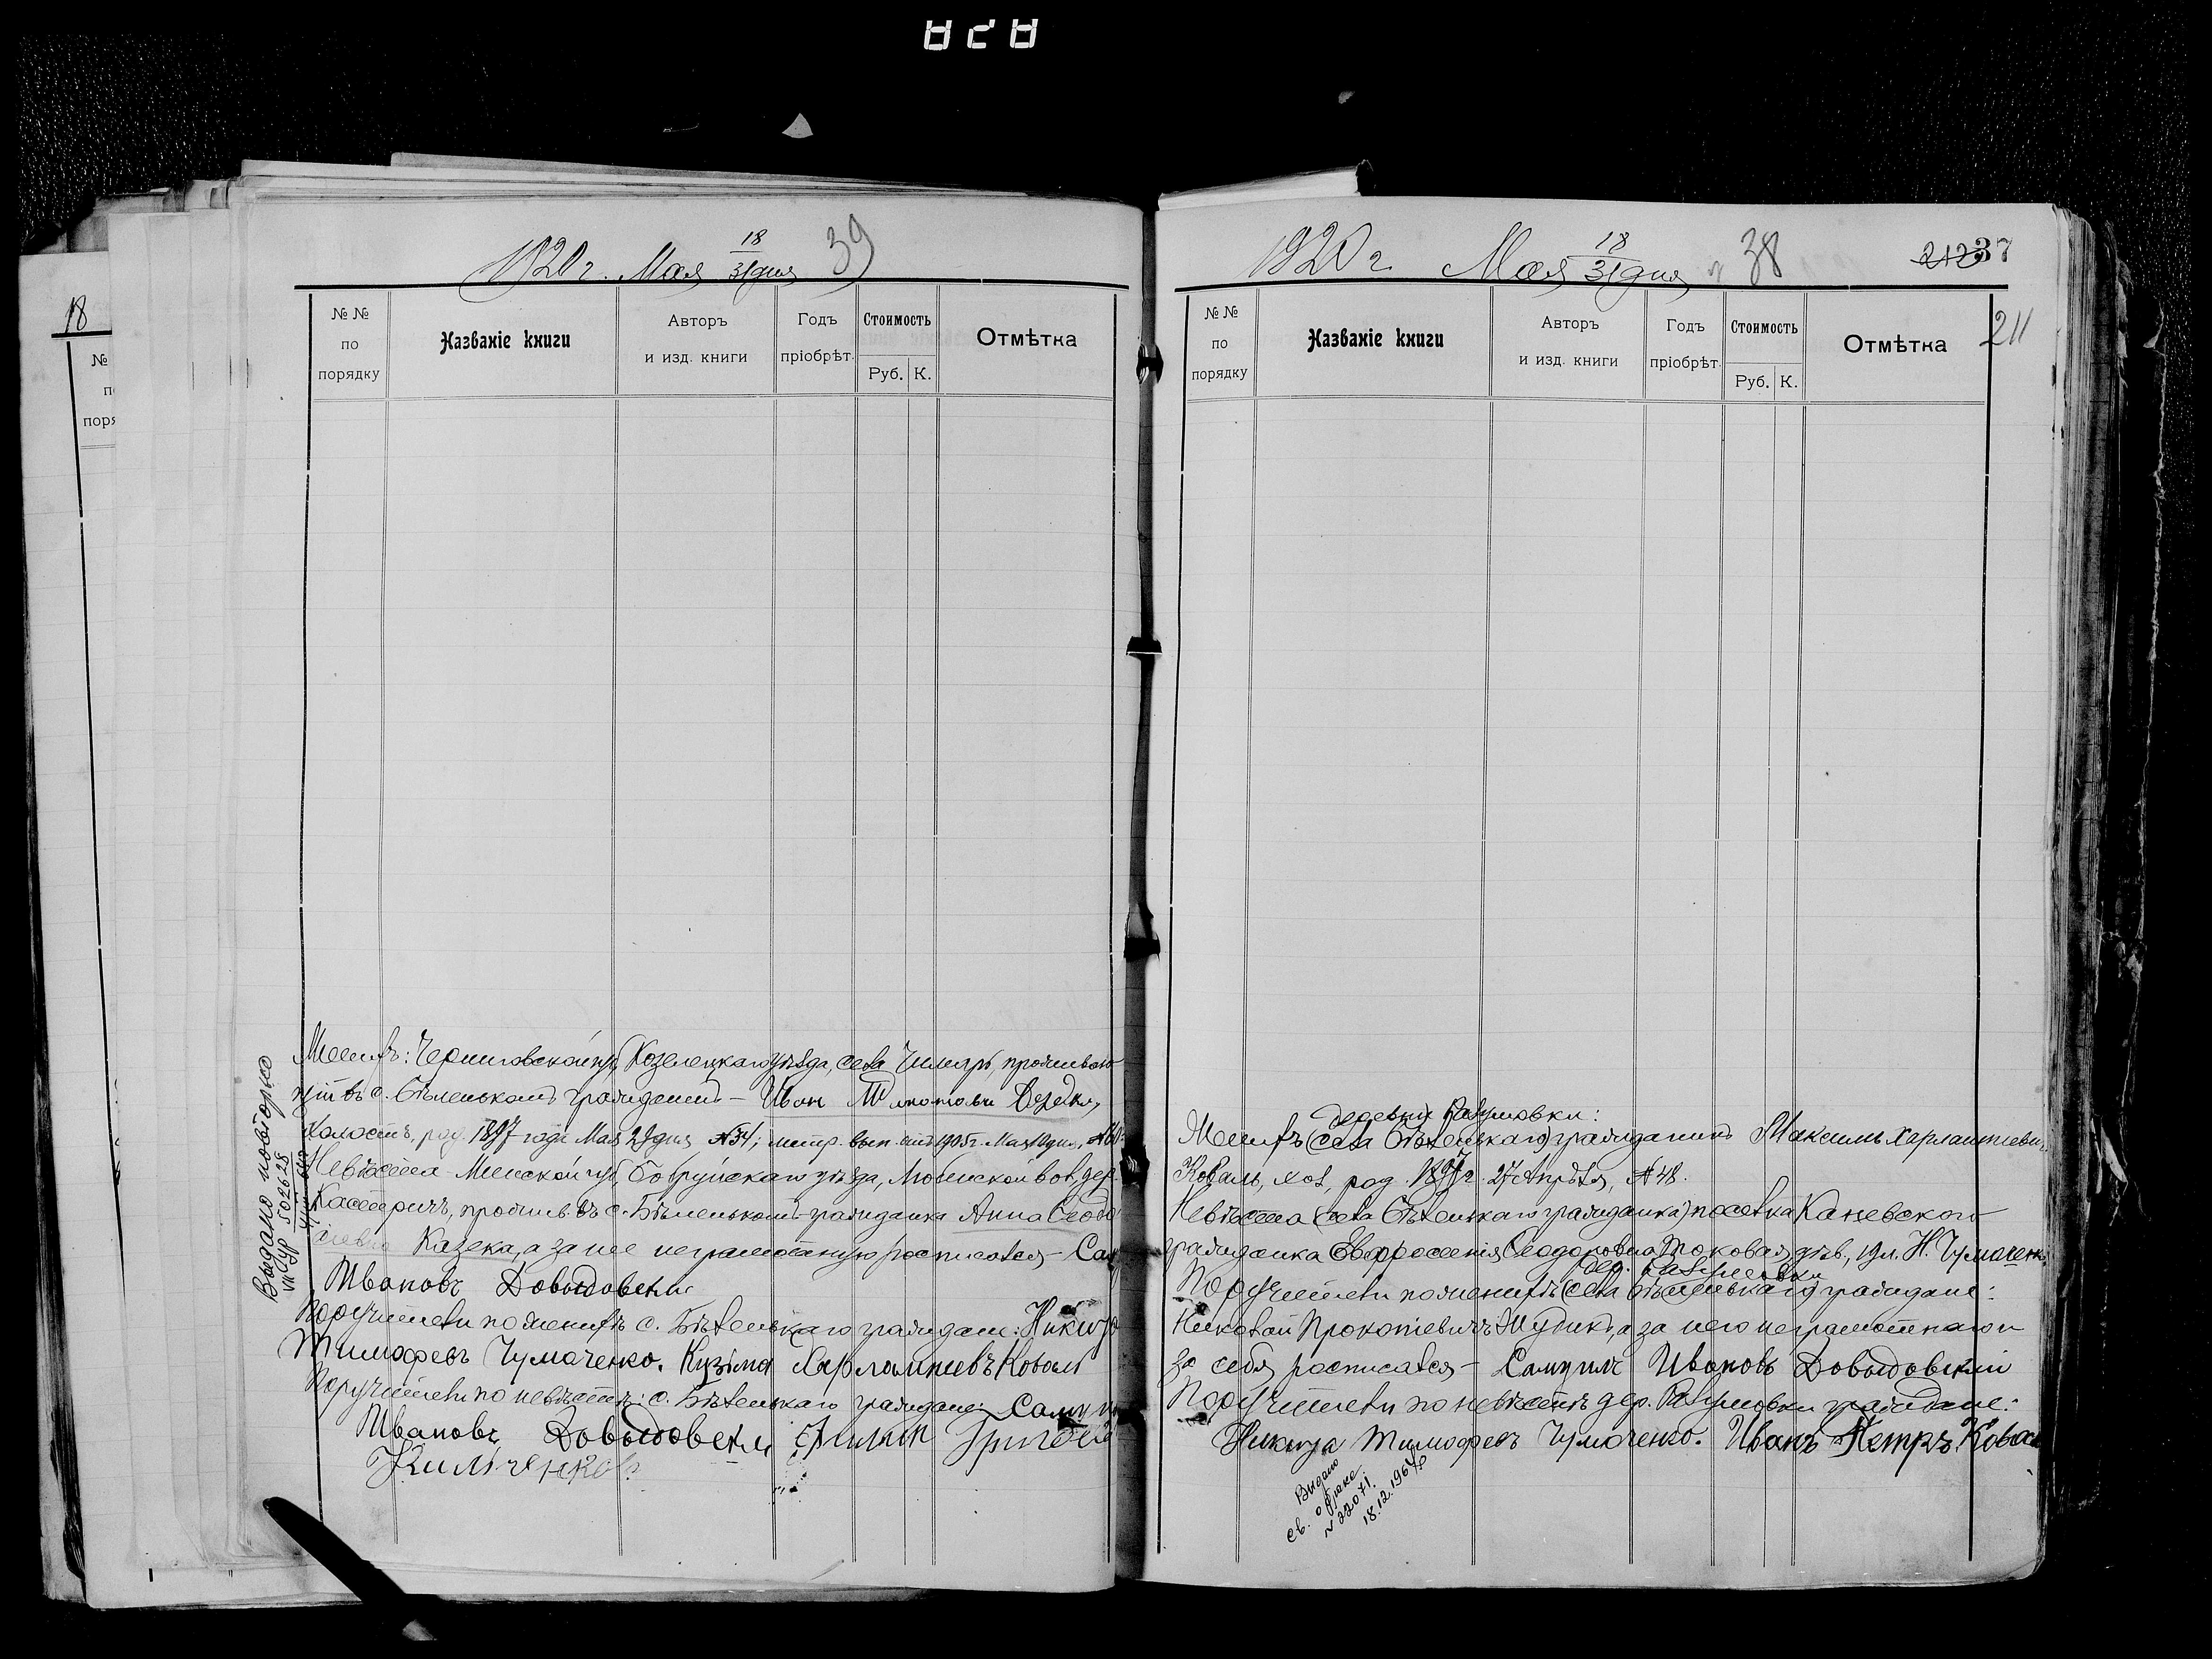 828
18
№
п
поря
1920 г. Мая 18/31 дня 39
№ №
по
порядку
Названіе книги
Авторъ
и изд. книги
Годъ
пріобрѣт.
Стоимость
Руб. К.
Отмѣтка
Женихъ: Черниговской губ, Козелецкаго уѣзда, села Чемеръ, проживаю-
щій въ с. Бѣленькомъ гражданинъ – Иван
Холостъ, род. 1897 года Мая 29 дня, №54; метр. вып. 1905 г. Мая 10 дня, №
Невѣста Минской губ, Бобруйскаго уѣзда, вол, дер.
Касаричъ, прожив. въ с. Бѣленькомъ гражданка Анна Ѳеодо
сіевна Казека, а за нее неграмотную росписался – Сам
Ивановъ Довыдовскій
Поручители по женихѣ с. Бѣленькаго граждане: Никита
Тимофеевъ Чумаченко. Кузьма Харлампиевъ Коваль
Поручители по невѣстѣ: с. Бѣленькаго граждане: Сам
Ивановъ Довыдовскій Филип Григорев
Климченков
Выдано повторно
VII ЯР 502628
1920 г. Мая 18/31 дня 38
212 37
211
№ №
по
порядку
Названіе книги
Авторъ
и изд. книги
Годъ
пріобрѣт.
Стоимость
Руб. К.
Отмѣтка
деревни Разумовки:
Женихъ (села Бѣленькаго) гражданинъ Максимъ Харлампіевич
Коваль, хол, род. 1897 г. 27 Апрѣля, №48.
Невѣста (села Бѣленькаго гражданка) поселка Каневского
гражданка Евфросинія Ѳеодоровна Токовая, дѣв, 19 л. Н. Чумаченко
дер. Разумовки
Поручители по женихѣ (села Бѣленькаго) граждане:
Николай Прокопіевичъ а за него неграмотнаго и
за себя росписался – Ивановъ Довыдовскій
Поручители по невѣстѣ дер. Разумовки граждане:
Никита Тимофеевъ Чумаченко. Иванъ Петръ Ковал
Выдано
св. о браке
№ 22071.
18.12.1964